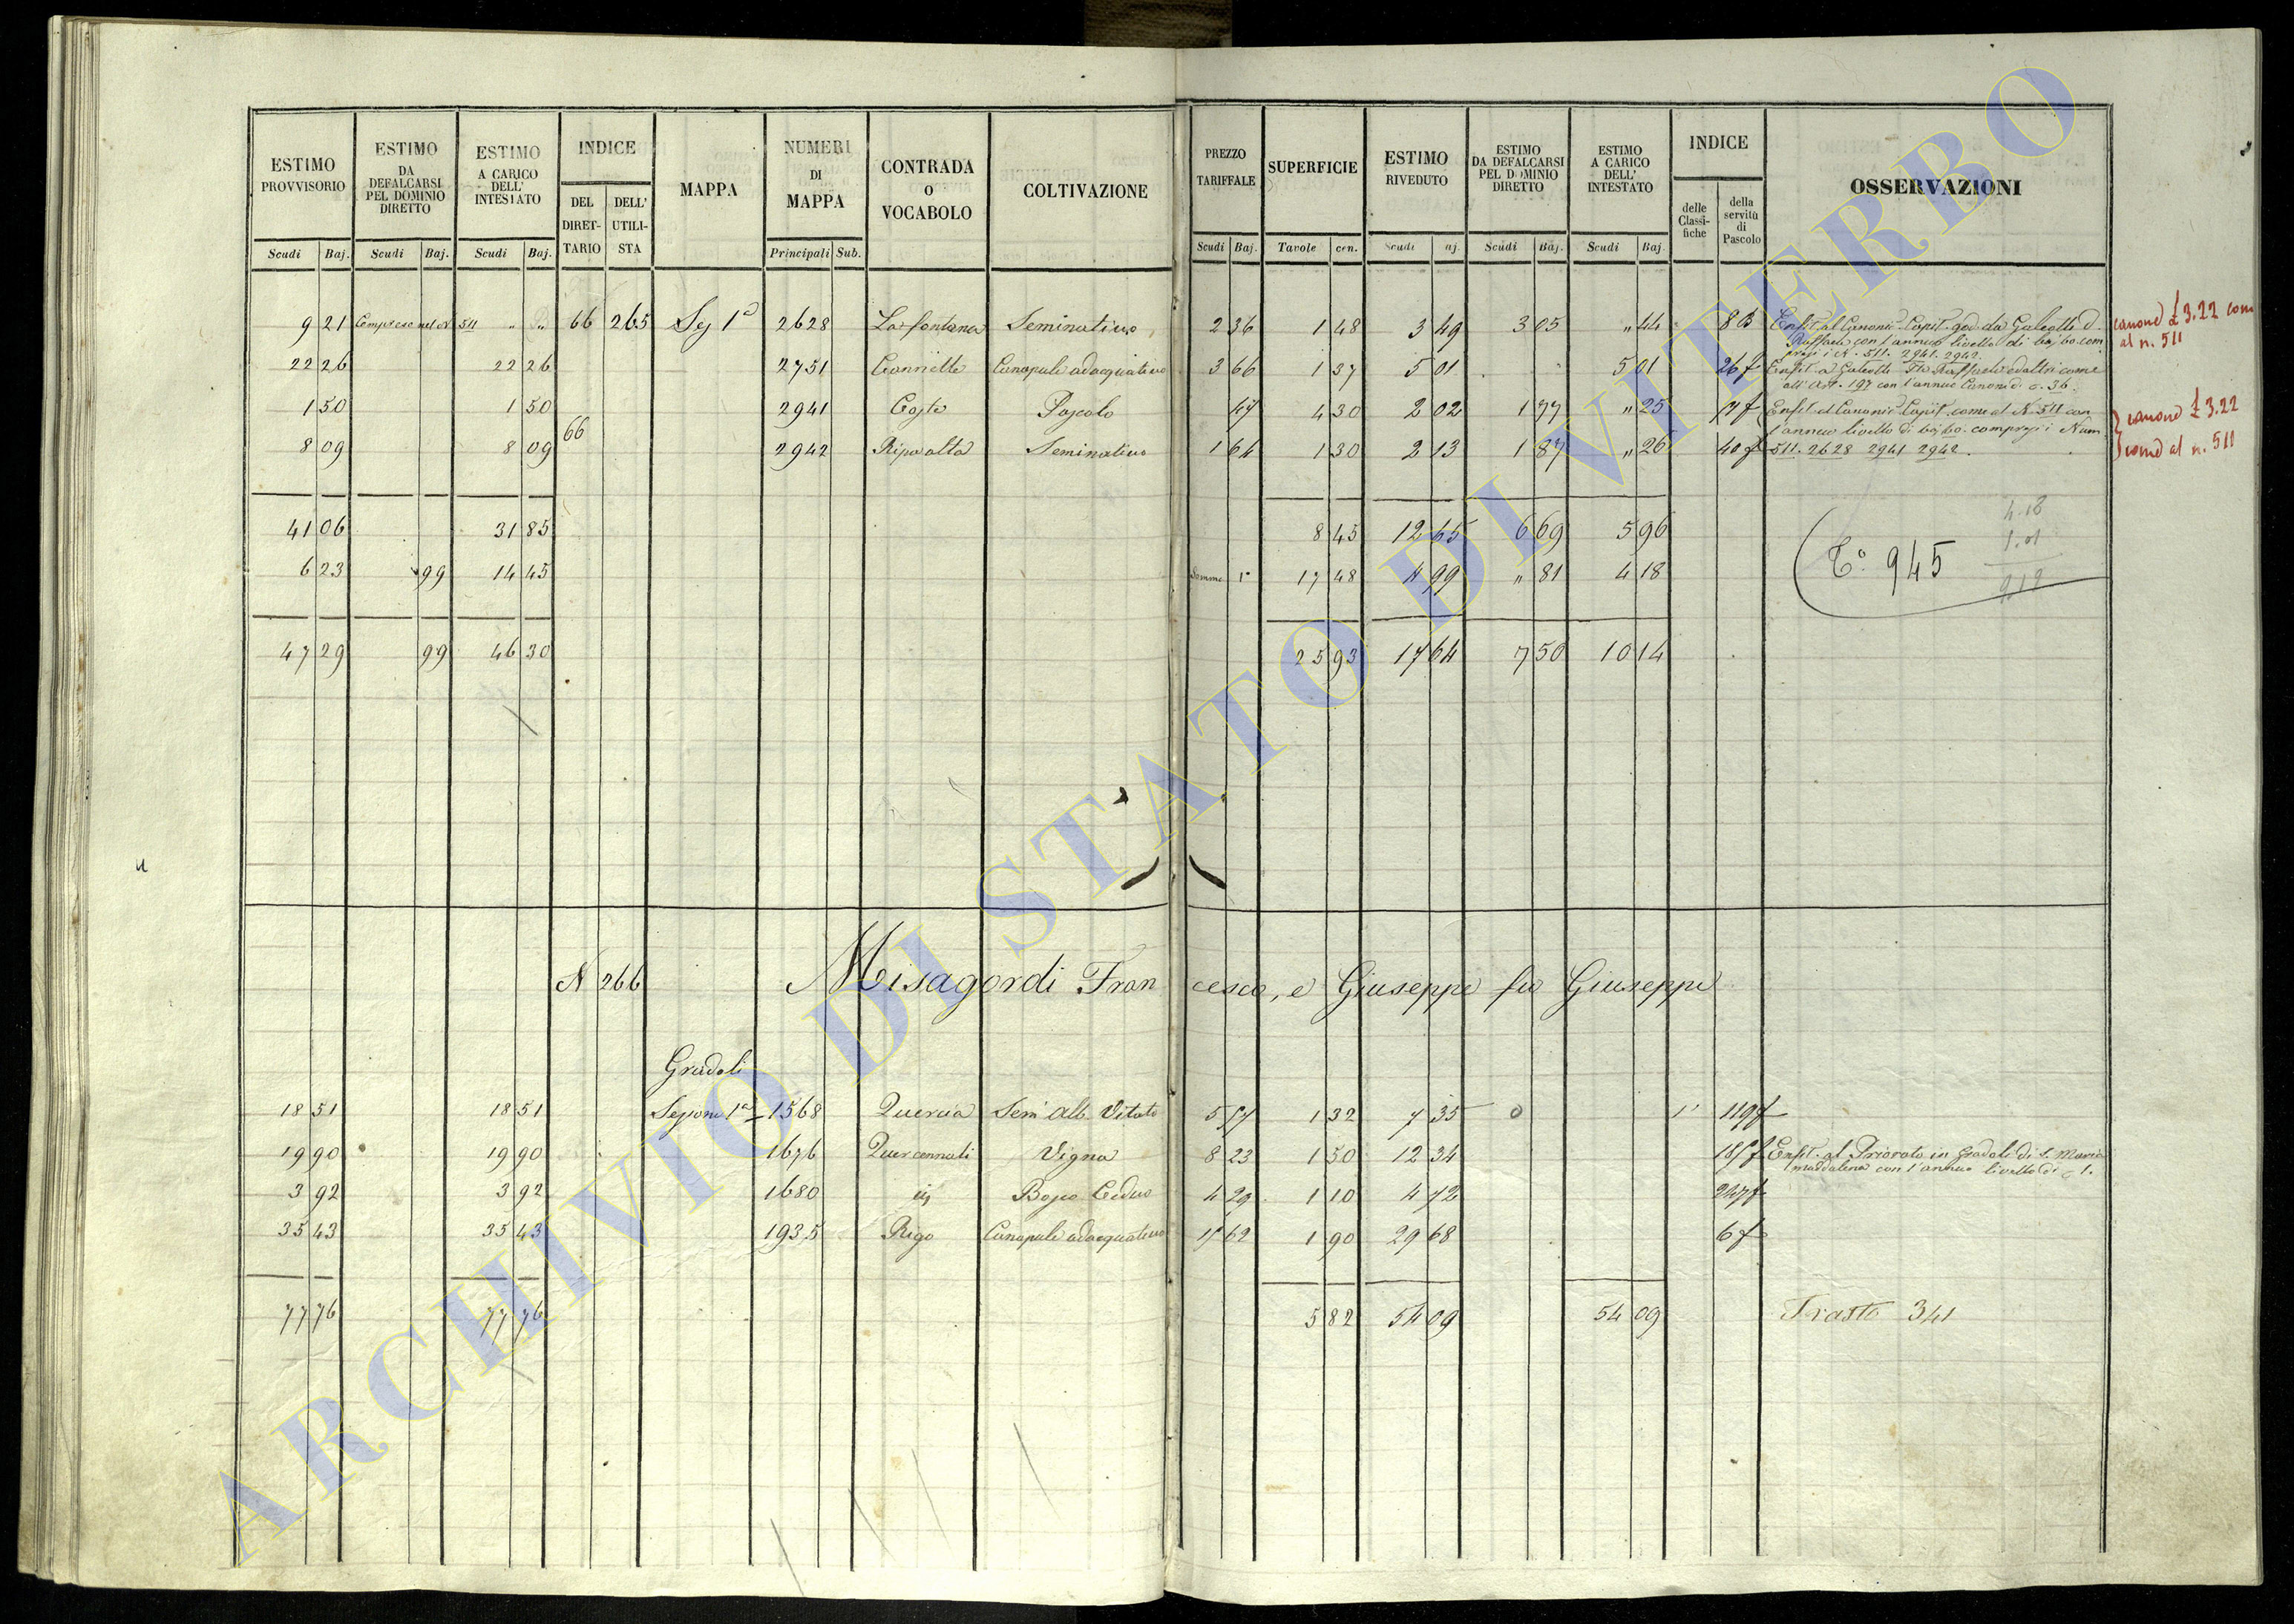 ESTIMO PROVVISORIO | ESTIMO DA DEFALCARSI PEL DOMINIO DIRETTO | ESTIMO A CARICO DELL' INTESTATO | INDICE | MAPPA | NUMERI DI MAPPA | CONTRADA o VOCABOLO | COLTIVAZIONE | PREZZO TARIFFALE | SUPERFICIE | ESTIMO RIVEDUTO | ESTIMO DA DEFALCARSI PEL DOMINIO DIRETTO | ESTIMO A CARICO DELL' INTESTATO | INDICE | OSSERVAZIONI
DEL DIRETTARIO | DELL' UTILISTA | delle Classifiche | della servitù di Pascolo
Scudi | Baj. | Scudi | Baj. | Scudi | Baj. | Principali | Sub. | Scudi | Baj. | Tavole | cen. | Scudi | aj. | Scudi | Baj. | Scudi | Baj.
9 21 | Compreso nel N 511 | " " | 66 | 265 | Sez 1ª | 2628 | La fontana | Seminativo | 2 36 | 1 48 | 3 49 | 3 05 | " 44 | 8 B | Enfit. al Canonic. Capit. god. da Galeotti D.
Raffaele con l'annuo livello di baj 60 com
presi i N. 511. 2941. 2942.
canone £ 3.22 come
al n. 511
22 26 | 22 26 | 2751 | Cannette | Canapule adacquativo | 3 66 | 1 37 | 5 01 | 5 01 | 26 f | Enfit. a Galeotti Raffaele ed altri come
all' Art. 197 con l'annuo Canone di 36
1 50 | 1 50 | 2941 | Coste | Pascolo | 47 | 4 30 | 2 02 | 1 77 | " 25 | 17 f | Enfit. al Canonic. Capit. come al N. 511 con
66
l'annuo livello di baj 60. compresi i Num.
8 09 | 8 09 | 2942 | Ripa alta | Seminativo | 1 64 | 1 30 | 2 13 | 1 87 | " 26 | 40 f | 511. 2628 2941 2942.
canone £ 3.22
come al n. 511
41 06 | 31 85 | 8 45 | 12 65 | 6 69 | 5 96
6 23 | 99 | 14 45 | Somma | 17 48 | 4 99 | " 81 | 4 18
Tº 945
47 29 | 99 | 46 30 | 25 93 | 17 64 | 7 50 | 10 14
N 266 Misagordi Francesco, e Giuseppe fu Giuseppe
Gradoli
18 51 | 18 51 | Sezione 1ª | 1568 | Quercia | Sem. Alb. Vitato | 5 57 | 1 32 | 7 35 | 0 | 1 | 119 f
19 90 | 19 90 | 1676 | Vigna | 8 23 | 1 50 | 12 34 | 185 f | Enfit. al Priorato in Gradoli di S. Maria
Maddalena con l'annuo livello di 1.
3 92 | 3 92 | 1680 | Bosco Ceduo | 4 29 | 1 10 | 4 72 | 247 f
35 43 | 35 43 | 1935 | Rigo | Canapule adacquativo | 15 62 | 1 90 | 29 68 | 6 f
77 76 | 77 76 | 5 82 | 54 09 | 54 09 | Trasto 341
ARCHIVIO DI STATO DI VITERBO